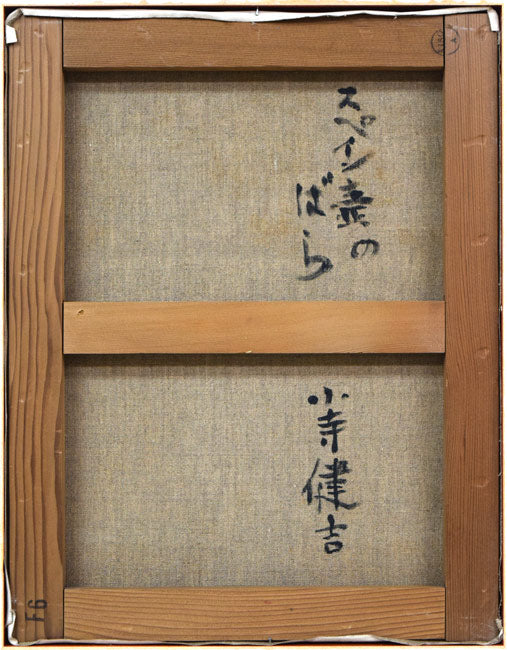 スペイン壷の
ばら
小寺健吉
F6